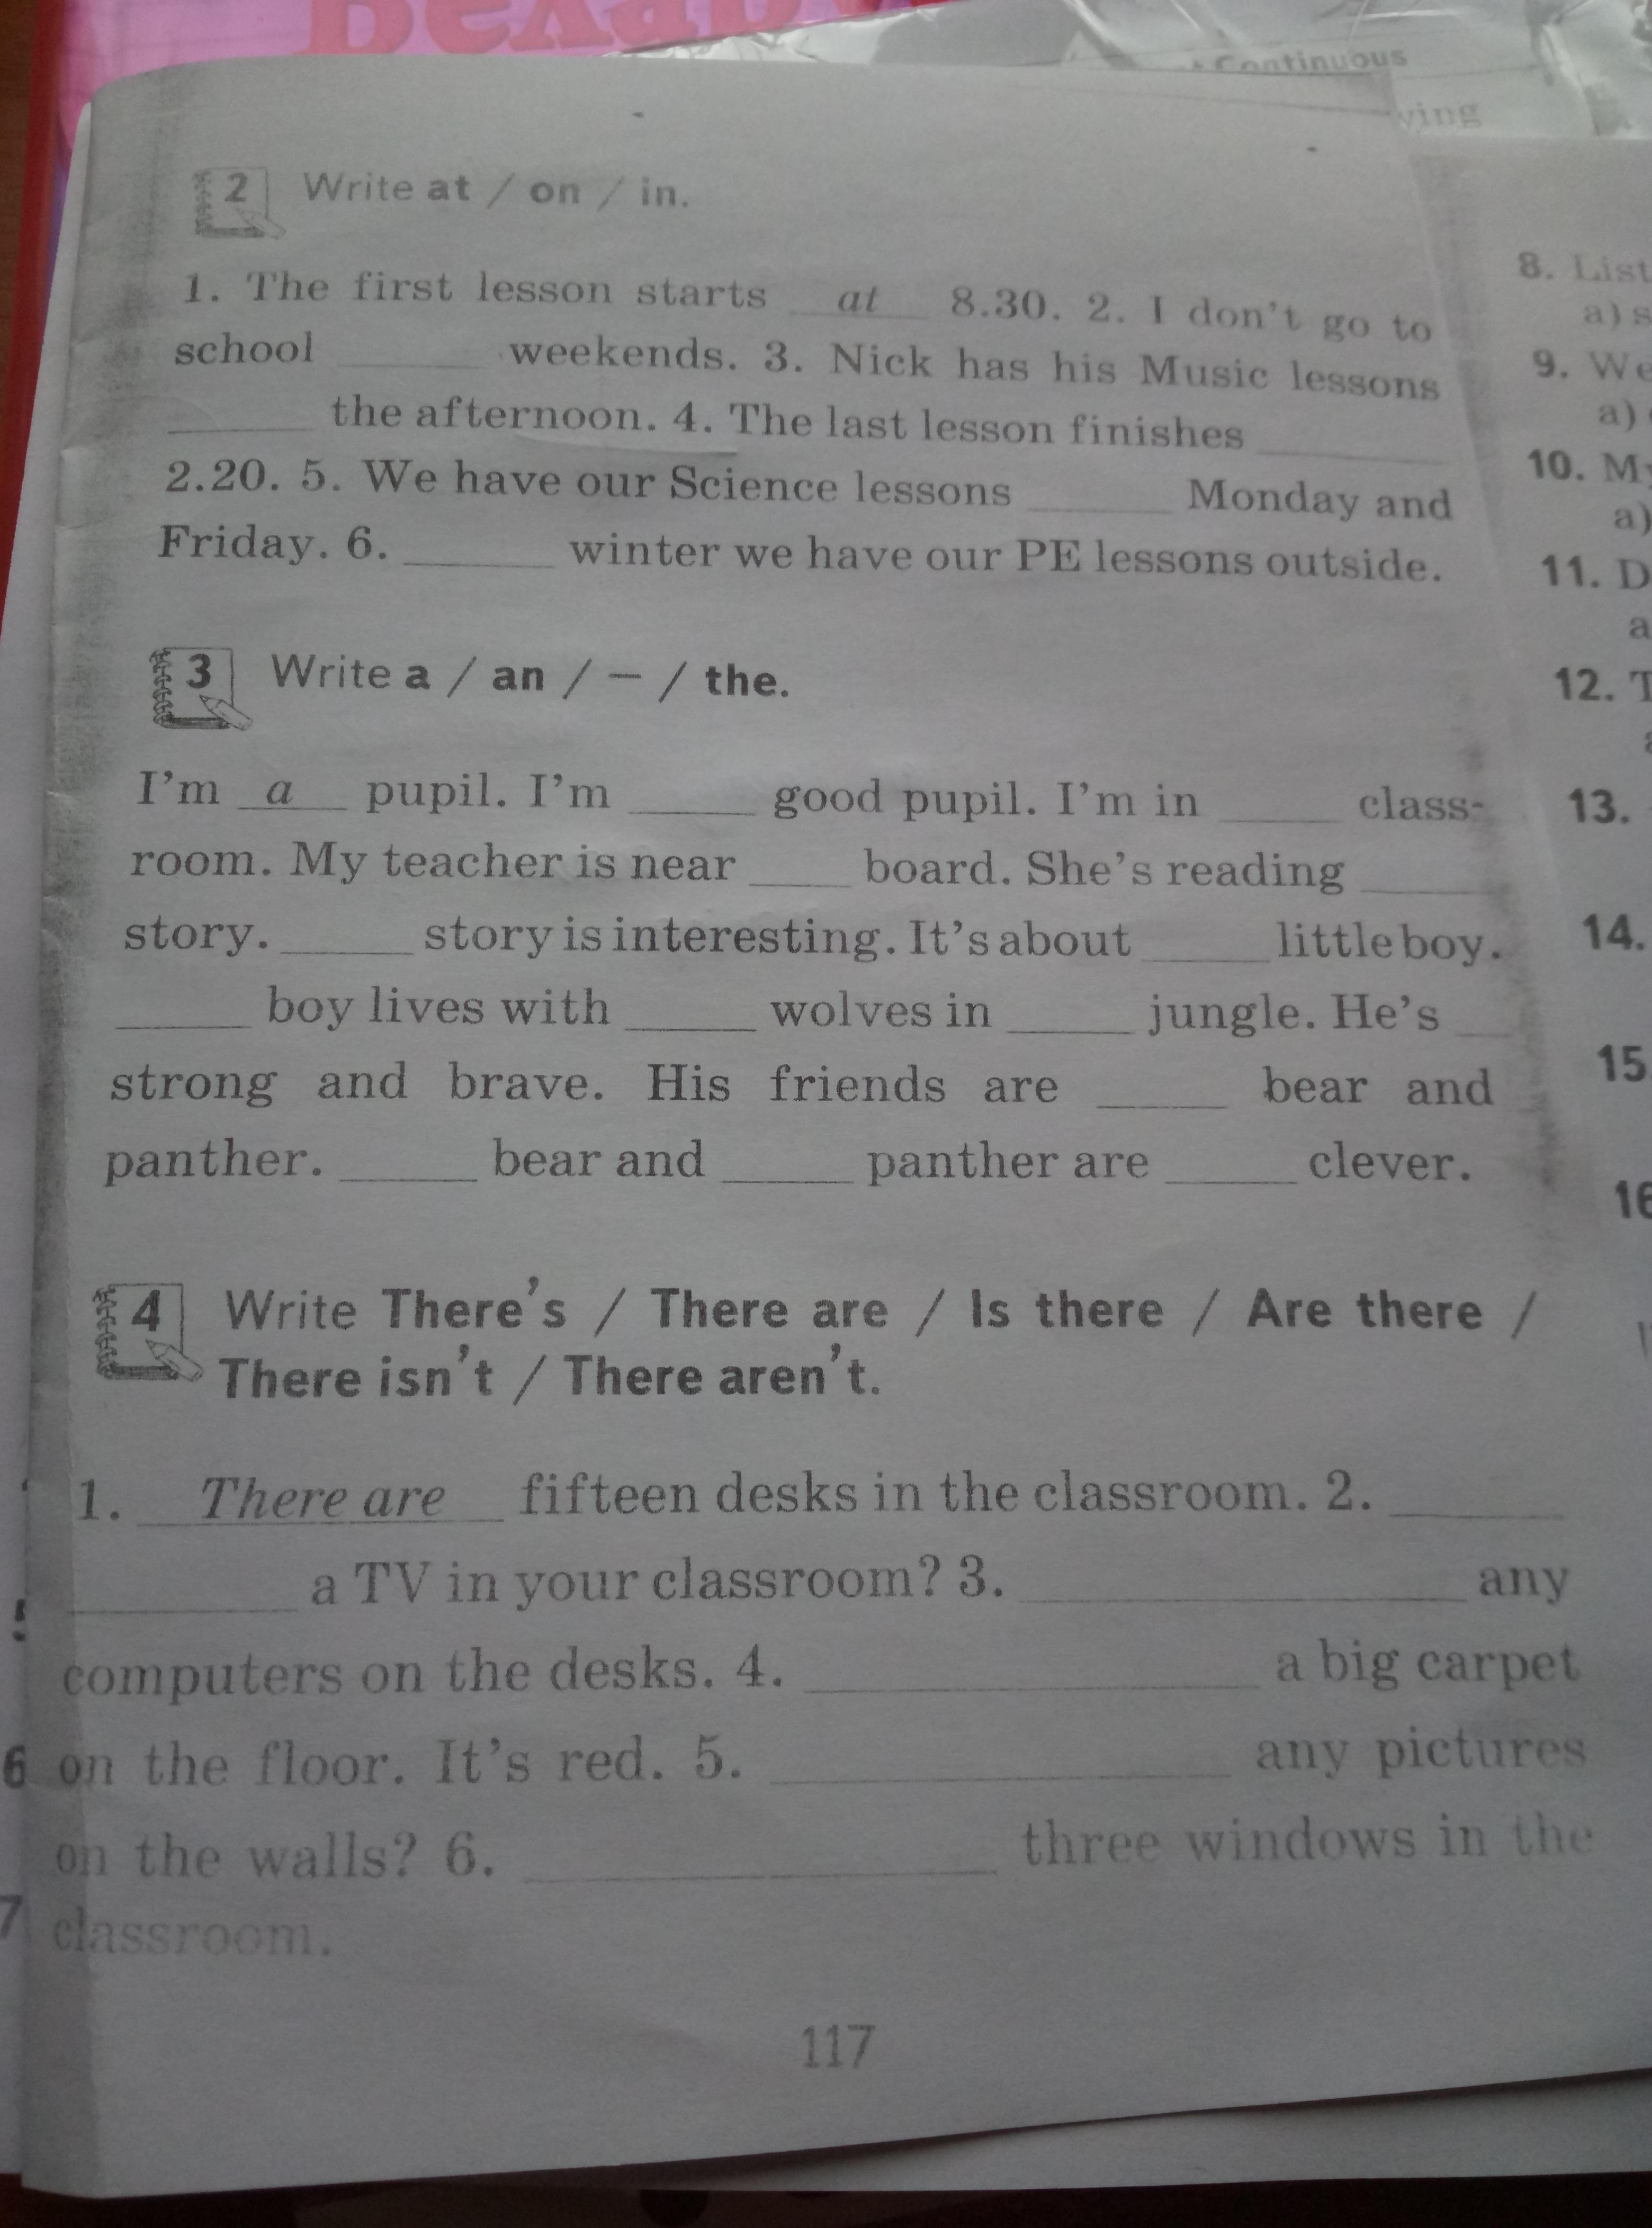 Continuous
2 Write at / on / in.
1. The first lesson starts at 8.30. 2. I don't go to
school ______ weekends. 3. Nick has his Music lessons
______ the afternoon. 4. The last lesson finishes ______
2.20. 5. We have our Science lessons ______ Monday and
Friday. 6. ______ winter we have our PE lessons outside.
3 Write a / an / – / the.
I'm a pupil. I'm ______ good pupil. I'm in ______ class-
room. My teacher is near ______ board. She's reading ______
story. ______ story is interesting. It's about ______ little boy.
______ boy lives with ______ wolves in ______ jungle. He's ______
strong and brave. His friends are ______ bear and
panther. ______ bear and ______ panther are ______ clever.
4 Write There's / There are / Is there / Are there /
There isn't / There aren't.
1. There are fifteen desks in the classroom. 2. ______
______ a TV in your classroom? 3. ______ any
computers on the desks. 4. ______ a big carpet
on the floor. It's red. 5. ______ any pictures
on the walls? 6. ______ three windows in the
classroom.
117
8. List
a) s
9. We
a)
10. My
a)
11. D
a
12. T
13.
14.
15
16
6
7